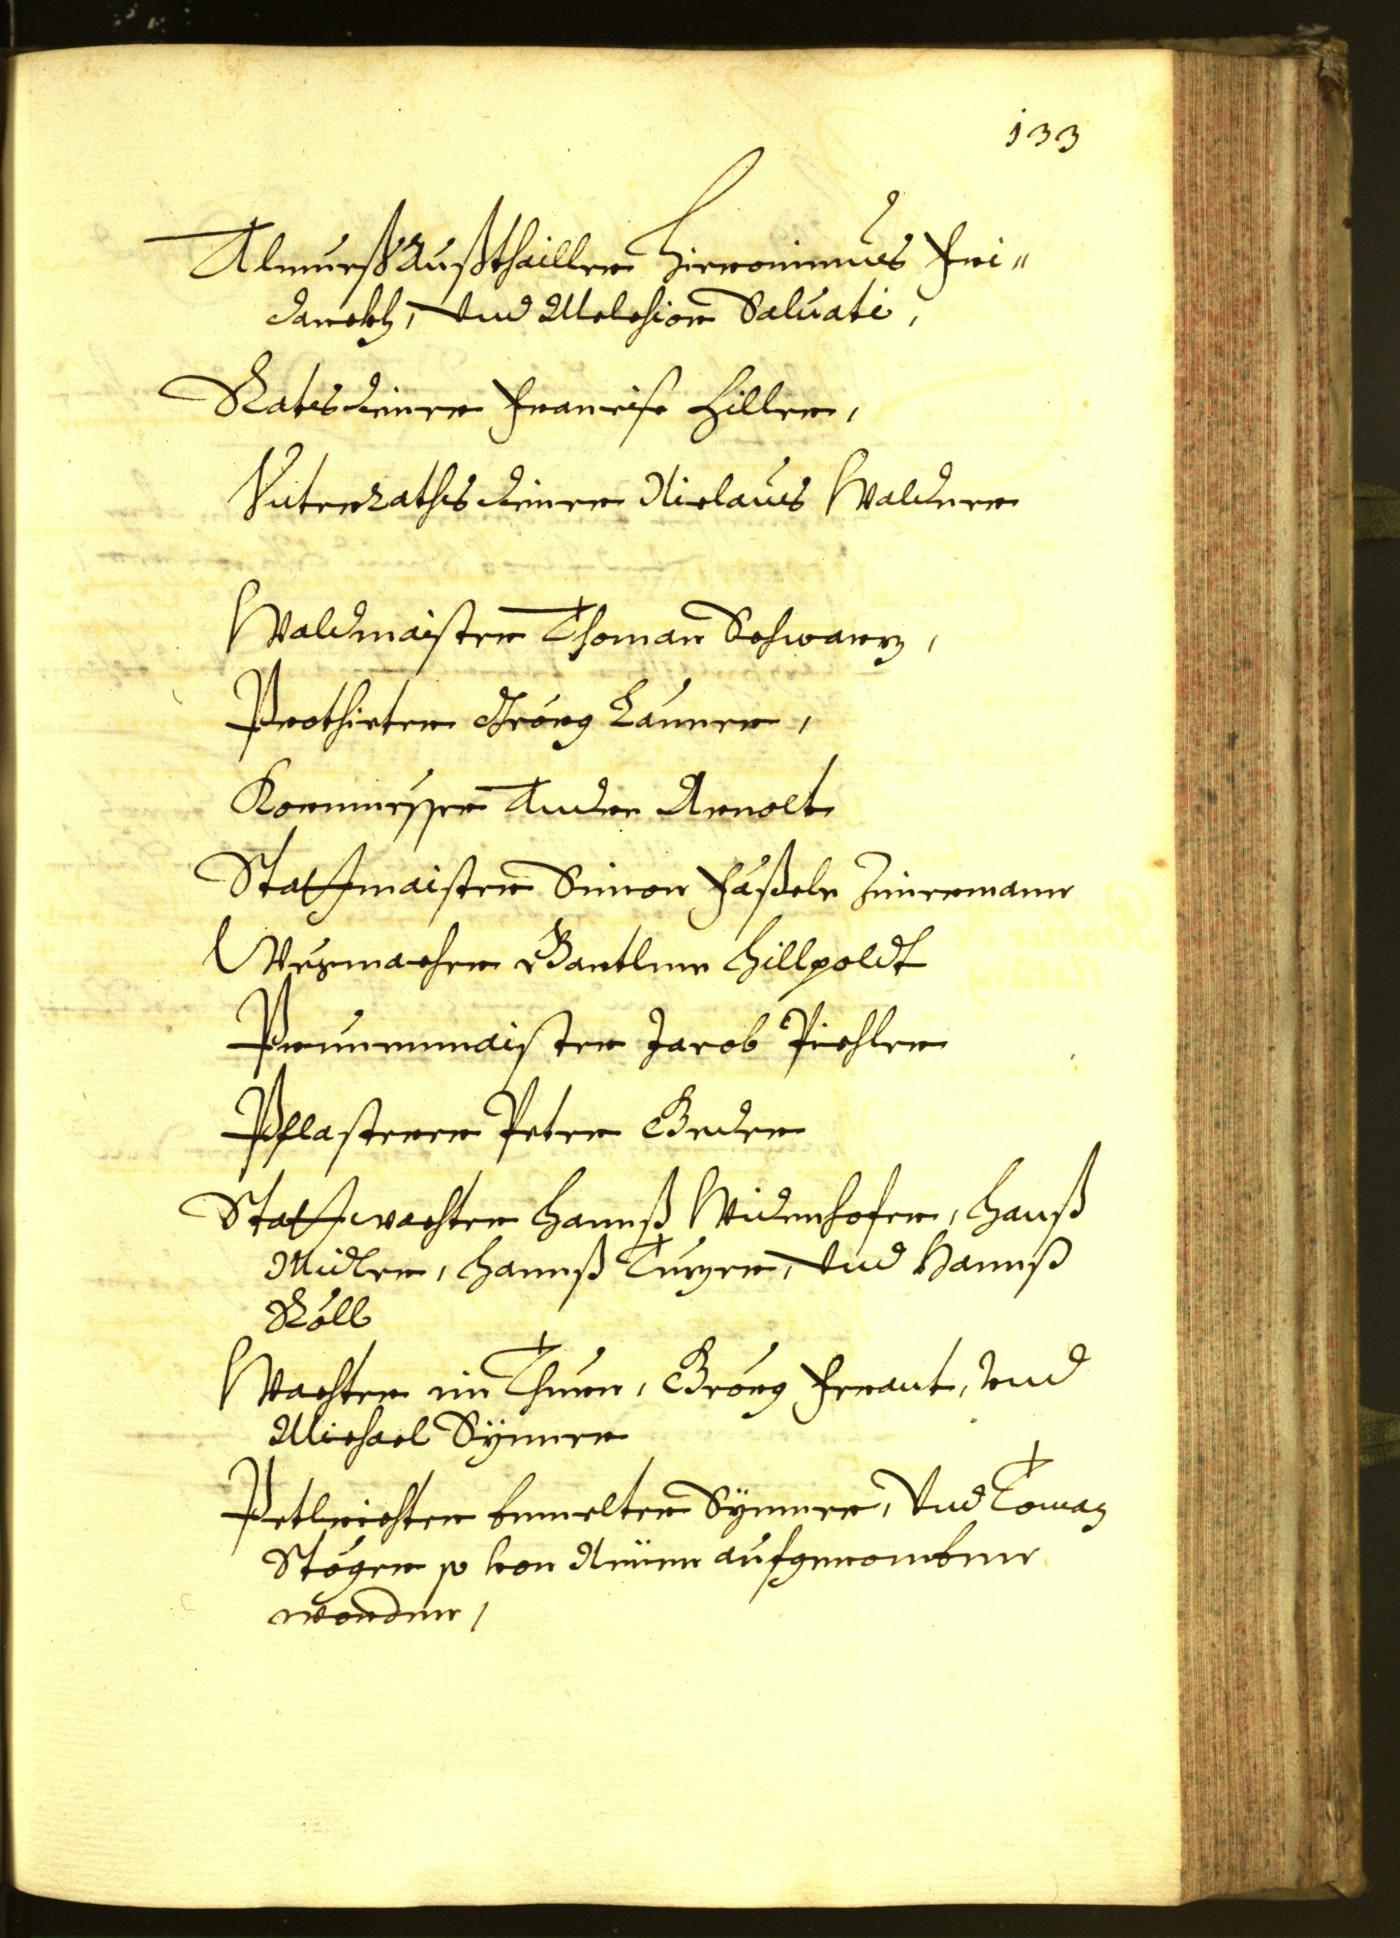 133
Almueß Außthailler Hieronimus Fri¬
derickh, Vnd Melchior Saluati,
Ratsdiener Francisc Hiller,
Vnterrathsdiener Niclaus Waldner
Waldmaister Thoman Schwarz,
Prothieter Geörg Launer,
Kornmesser Andre Arnolt
Stattmaister Simon Fäßele Zimerman
Weegmacher Bartlme Hillpoldt
Prunnmaister Jacob Pichler
Pflasterer Peter Beder
Stattwachter Hannß Widenhofer, Hanß
Midler, Hannß Turzer, Vnd Hannß
Röll
Wachter im Thurn, Geörg Feraut, Vnd
Michael Symer
Petlrichter bemelter Symer, Vnd Tomaz
Stöger so von Neüen aufgenomben
worden,